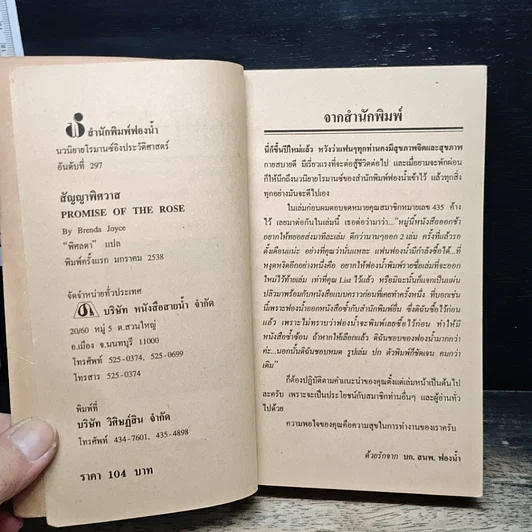 สำนักพิมพ์ฟองน้ำ
นวนิยายโรมานซ์อิงประวัติศาสตร์
อันดับที่ 297
สัญญาพิศวาส
PROMISE OF THE ROSE
By Brenda Joyce
"พิศลดา" แปล
พิมพ์ครั้งแรก มกราคม 2538
จัดจำหน่ายทั่วประเทศ
บริษัท หนังสือสายน้ำ จำกัด
20/60 หมู่ 5 ต.สวนใหญ่
อ.เมือง จ.นนทบุรี 11000
โทรศัพท์ 525-0374, 525-0699
โทรสาร 525-0374
พิมพ์ที่
บริษัท วิคิษฏ์สิน จำกัด
โทรศัพท์ 434-7601, 435-4898
ราคา 104 บาท
จากสำนักพิมพ์
นี่ก็ขึ้นปีใหม่แล้ว หวังว่าแฟนๆทุกท่านคงมีสุขภาพจิตและสุขภาพ
กายสบายดี มีเรี่ยวแรงที่จะต่อสู้ชีวิตต่อไป และเมื่อยามจะพักผ่อน
ก็ให้นึกถึงนวนิยายโรมานซ์ของสำนักพิมพ์ฟองน้ำเข้าไว้ แล้วทุกสิ่ง
ทุกอย่างมันจะดีไปเอง
ในเล่มก่อนผมตอบจดหมายคุณสมาชิกหมายเลข 435 ค้าง
ไว้ เลยมาต่อกันในเล่มนี้ เธอต่อว่ามาว่า..."หมู่นี้หนังสือออกช้า
อยากให้ทยอยส่งมาทีละเล่ม ดีกว่านานๆออก 2 เล่ม ครั้งที่แล้วรอ
ตั้งเดือนแน่ะ อย่างที่คุณว่านั่นแหละ แฟนฟองน้ำมีกำลังซื้อได้...ที่
หงุดหงิดอีกอย่างหนึ่งคือ อยากให้ฟองน้ำพิมพ์รายชื่อเล่มที่จะออก
ใหม่ไว้ท้ายเล่ม เท่าที่คุณ List ไว้แล้ว หรือมิฉะนั้นก็แจกเป็นแผ่น
ปลิวมาพร้อมกับหนังสือแบบคราวก่อนที่เคยทำครั้งหนึ่ง ที่บอกเช่น
นี้เพราะฟองน้ำออกหนังสือซ้ำกับสำนักพิมพ์อื่น ซึ่งดิฉันซื้อไว้ก่อน
แล้ว เพราะไม่ทราบว่าฟองน้ำจะพิมพ์เลยซื้อไว้ก่อน ทำให้มี
หนังสือซ้ำซ้อน ถ้าหากให้เลือกแล้ว ดิฉันชอบของฟองน้ำมากกว่า
ค่ะ...นอกนั้นดิฉันชอบหมด รูปเล่ม ปก ตัวพิมพ์ก็ชัดเจน คมกว่า
เดิม"
ก็ต้องปฏิบัติตามคำแนะนำของคุณตั้งแต่เล่มหน้าเป็นต้นไป
ละครับ เพราะจะเป็นประโยชน์กับสมาชิกท่านอื่นๆ และผู้อ่านทั่ว
ไปด้วย
ความพอใจของคุณคือความสุขในการทำงานของเราครับ
ด้วยรักจาก บก. สนพ. ฟองน้ำ